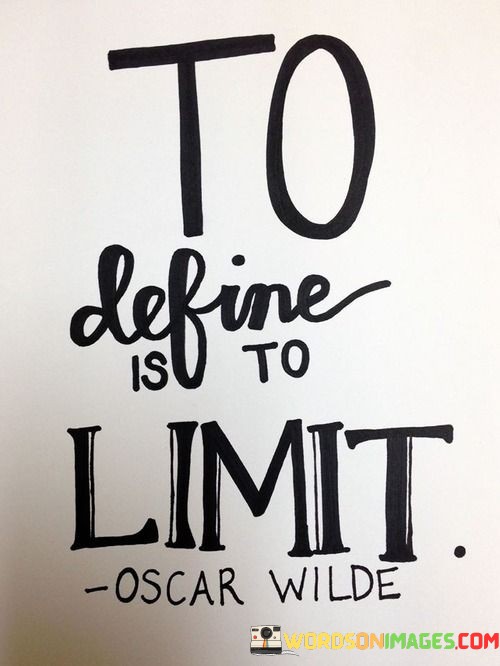 TO
define
IS TO
LIMIT.
-OSCAR WILDE
WORDSONIMAGES.COM